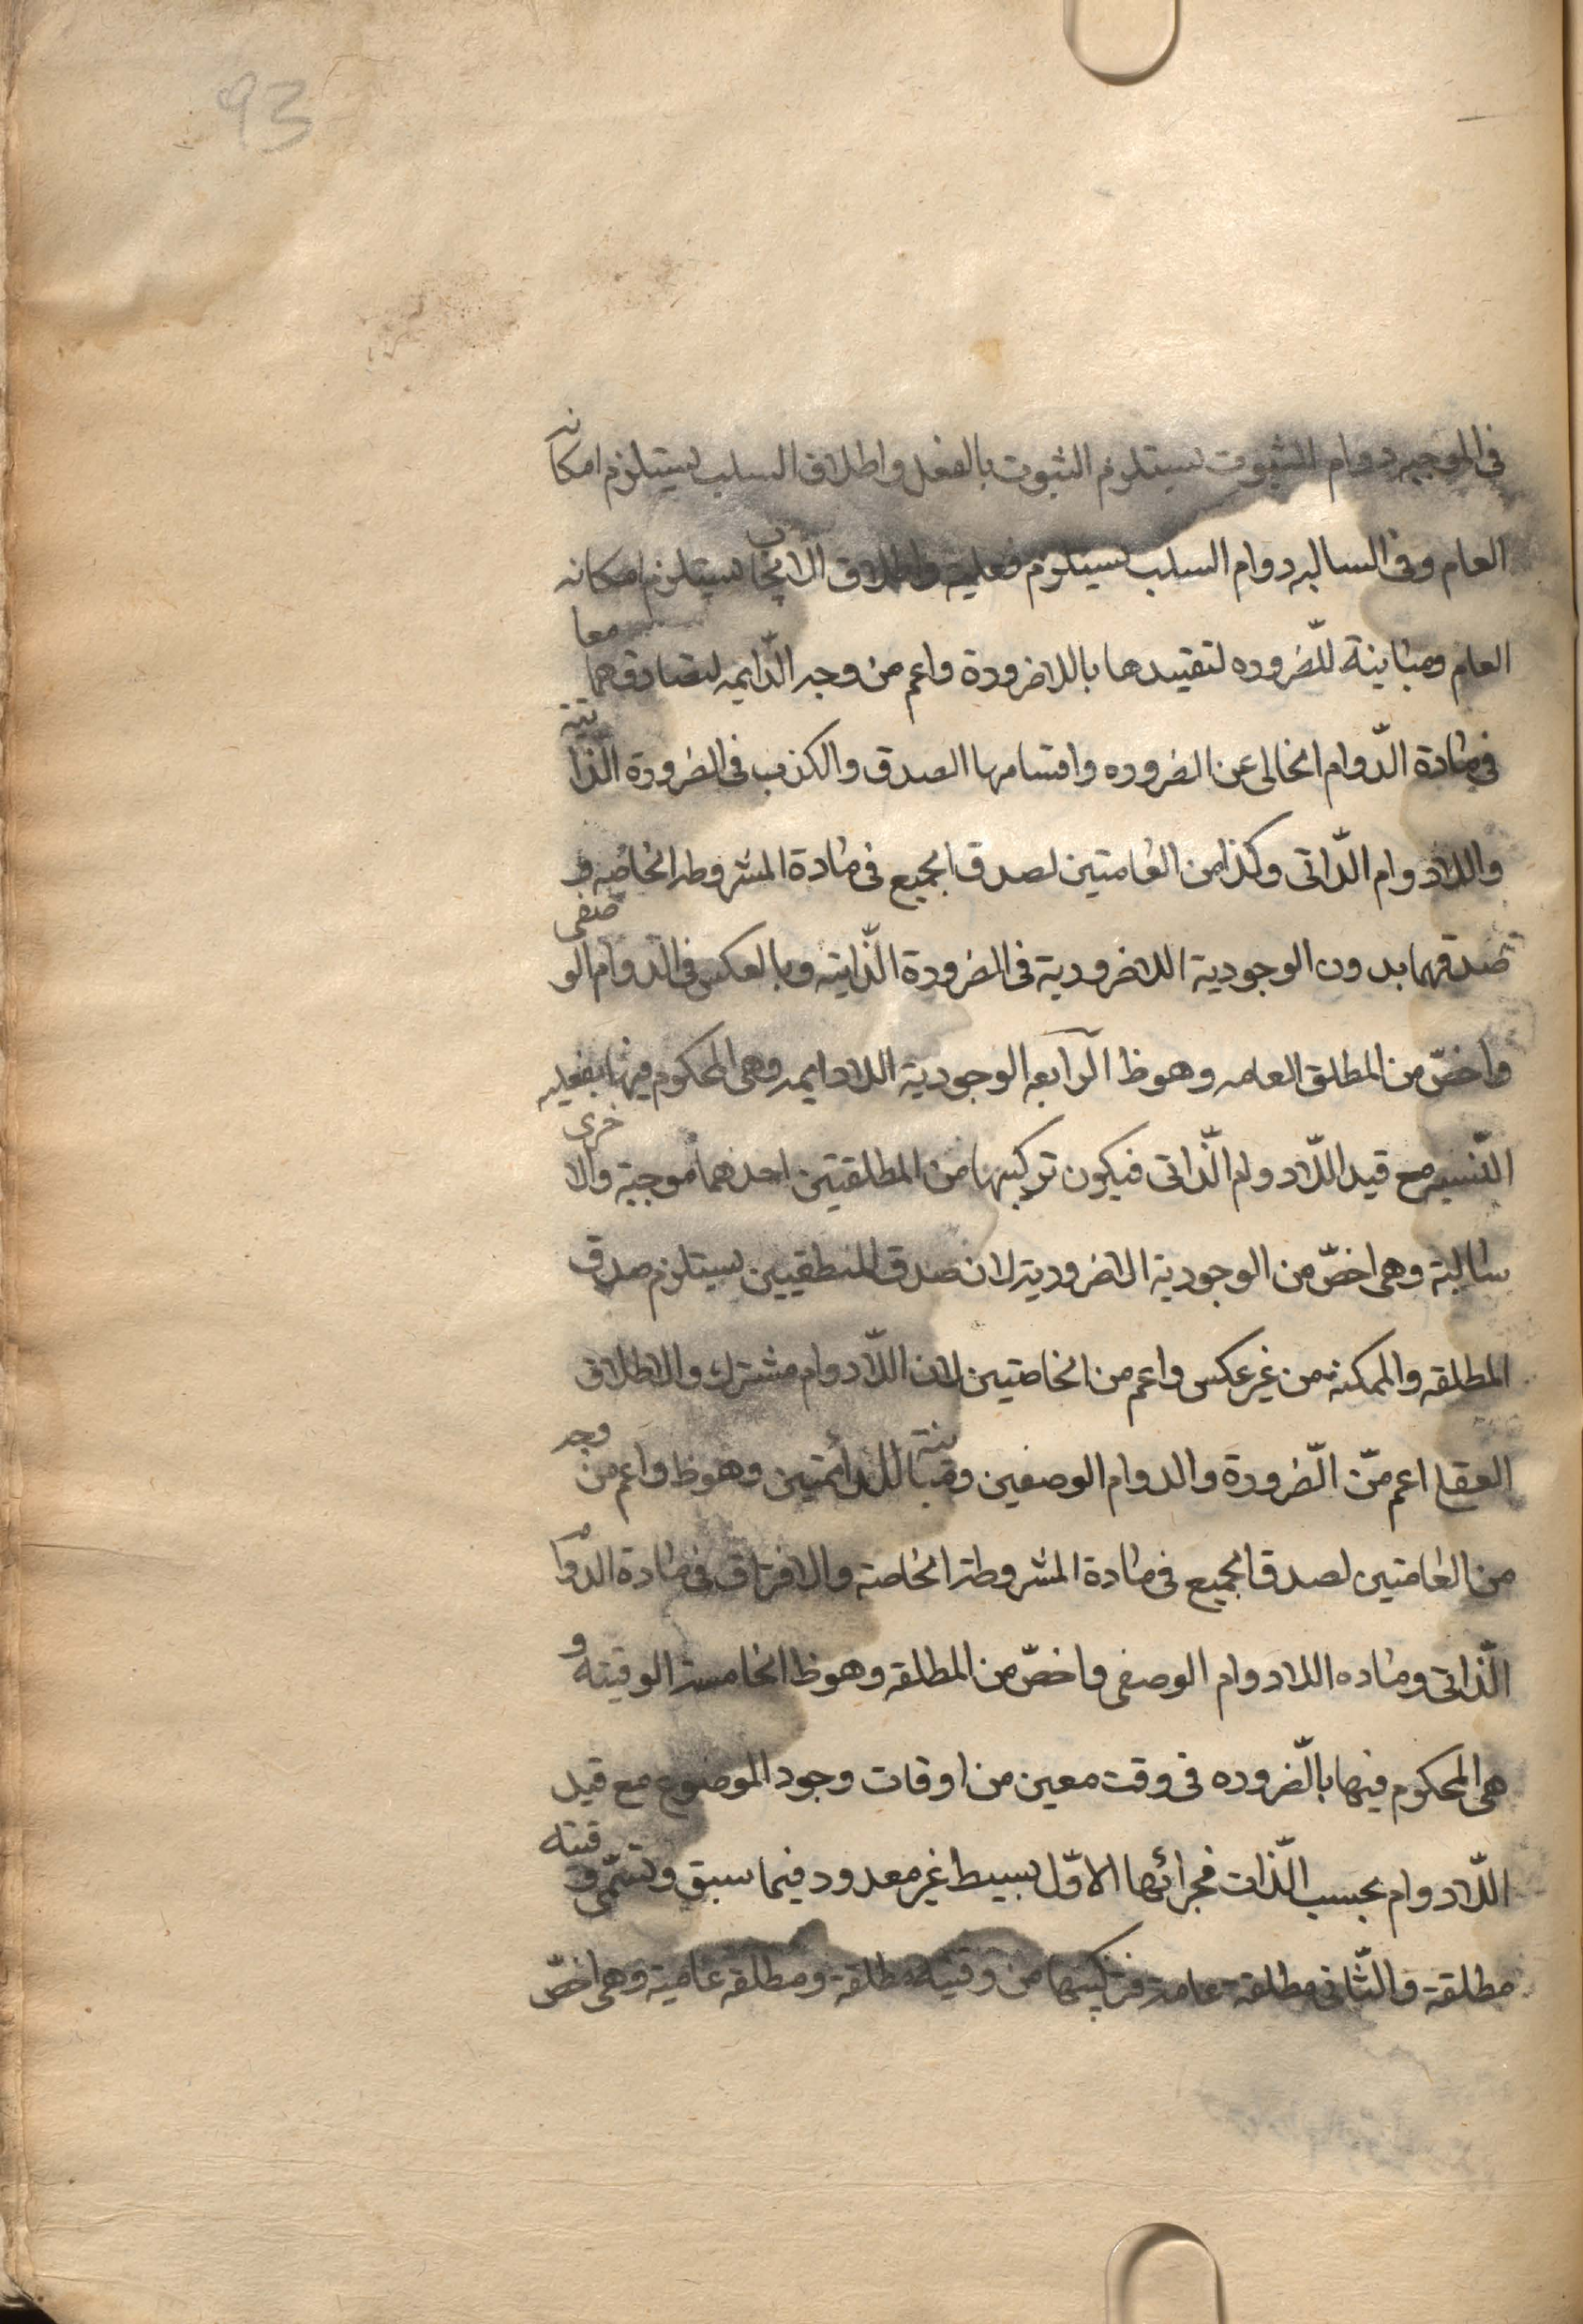 93
فى الموجبه دوام الثبوت يستلزم الثبوت بالفعل واطلاق السلب يستلزم امكانه
العام وفى السالبه دوام السلب يستلزم فعليته واطلاق الايجاب يستلزم امكانه
العام ومباينة للضروره لتقييدها باللاضرورة واعم من وجه الدّايمه لتصادقهما معا
فى مادة الدّوام الخالى عن الضروره واقتسامها الصدق والكذب فى الضرورة الذاتية
واللادوام الذّاتى وكذا من العامتين لصدق الجميع فى مادة المشروطه الخاصه و
صدقهما بدون الوجودية اللاضرورية فى الضرورة الذّاتيه وبالعكس فى الدوام الوصفى
واخصّ من المطلق العامه وهو ظ الرّابعه الوجودية اللادايمه وهى المحكوم فيها بفعليه
النّسبه مع قيد اللّادوام الذّاتى فيكون تركيبها من المطلقتين احدهما موجبة والاخرى
سالبة وهى اخصّ من الوجودية الاضرورية لان صدق المنطقيين يستلزم صدق
المطلقه والممكنه من غير عكس واعم من الخاصتين لان اللّادوام مشترك والاطلاق
العقل اعم من الضّرورة والدوام الوصفين ومباينة للدائمتين وهو ظ واعم من وجه
من العامتين لصدق الجميع فى مادة المشروطة الخاصة والافتراق فى مادة الدوام
الذّاتى وماده اللادوام الوصفى واخصّ من المطلقه وهو ظ الخامسة الوقيته و
هى المحكوم فيها بالضّروره فى وقت معين من اوقات وجود الموضوع مع قيد
اللّادوام بحسب الذّات فجزائها الاوّل بسيط غير معدود فيما سبق وتسمّى وقتيه
مطلقة والثّانى مطلقة عامة فتركيبها من وقتية مطلقة ومطلقه عامية وهى اخصّ